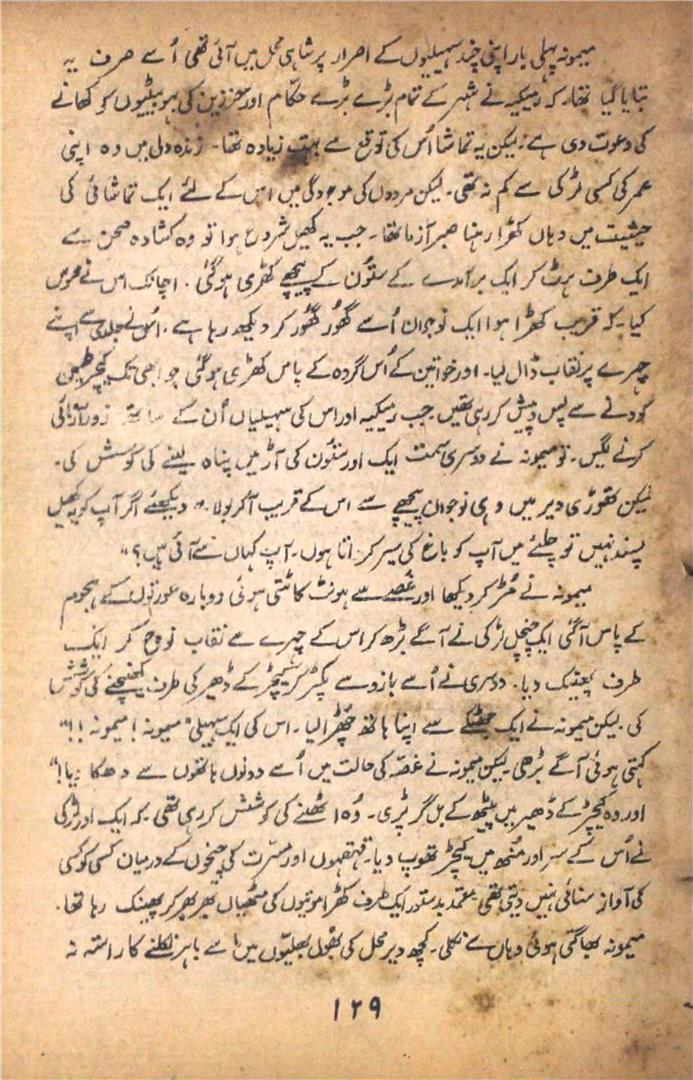 میمونہ پہلی بار اپنی چند سہیلیوں کے اصرار پر شاہی محل میں آئی تھی اُسے صرف یہ
بتایا گیا تھا، کہ رمیکیہ نے شہر کے تمام بڑے بڑے حکّام اور معززین کی بہو بیٹیوں کو کھانے
کی دعوت دی ہے۔ لیکن یہ تماشا اُس کی توقع سے بہت زیادہ تھا۔ زندہ دلی میں وہ اپنی
عمر کی کسی لڑکی سے کم نہ تھی۔ لیکن مردوں کی موجودگی میں اس کے لئے ایک تماشائی کی
حیثیت میں وہاں کھڑا رہنا صبر آزما تھا۔ جب یہ کھیل شروع ہوا تو وہ کشادہ صحن سے
ایک طرف ہٹ کر ایک برآمدے کے ستون کے پیچھے کھڑی ہو گئی۔ اچانک اس نے محسوس
کیا۔ کہ قریب کھڑا ہوا ایک نوجوان اُسے گھُور گھُور کر دیکھ رہا ہے۔ اس نے جلدی سے اپنے
چہرے پر نقاب ڈال لیا۔ اور خواتین کے اُس گروہ کے پاس کھڑی ہو گئی جو ابھی تک کیچڑ میں
کودنے سے پس و پیش کر رہی تھیں۔ جب رمیکیہ اور اس کی سہیلیاں اُن کے ساتھ زور آزمائی
کرنے لگیں۔ تو میمونہ نے دوسری سمت ایک اور ستون کی آڑ میں پناہ لینے کی کوشش کی۔
لیکن تھوڑی دیر میں وہی نوجوان پیچھے سے اس کے قریب آ کر بولا۔ "دیکھئے اگر آپ کو یہ کھیل
پسند نہیں تو چلئے میں آپ کو باغ کی سیر کراتا ہوں۔ آپ کہاں سے آئی ہیں؟"
میمونہ نے مُڑ کر دیکھا اور غصّے سے ہونٹ کاٹتی ہوئی دوبارہ عورتوں کے ہجوم
کے پاس آ گئی ایک چنچل لڑکی نے آگے بڑھ کر اس کے چہرے سے نقاب نوچ کر ایک
طرف پھینک دیا۔ دوسری نے اُسے بازو سے پکڑ کر کیچڑ کے ڈھیر کی طرف کھینچنے کی کوشش
کی۔ لیکن میمونہ نے ایک جھٹکے سے اپنا ہاتھ چھُڑا لیا۔ اس کی ایک سہیلی "میمونہ! میمونہ!!"
کہتی ہوئی آگے بڑھی۔ لیکن میمونہ نے غصّہ کی حالت میں اُسے دونوں ہاتھوں سے دھکا دیا!"
اور وہ کیچڑ کے ڈھیر میں پیٹھ کے بل گر پڑی۔ وُہ اٹھنے کی کوشش کر رہی تھی۔ کہ ایک اور لڑکی
نے اُس کے سر اور منُھ میں کیچڑ تھوپ دیا۔ قہقہوں اور مسرّت کی چیخوں کے درمیان کسی کو کسی
کی آواز سنائی نہیں دیتی تھی۔ معتمد بدستور ایک طرف کھڑا موتیوں کی مٹھیاں بھر بھر کر پھینک رہا تھا۔
میمونہ بھاگتی ہوئی وہاں سے نکلی۔ کچھ دیر محل کی بھُول بھلیّوں میں اسے باہر نکلنے کا راستہ نہ
۱۲۹